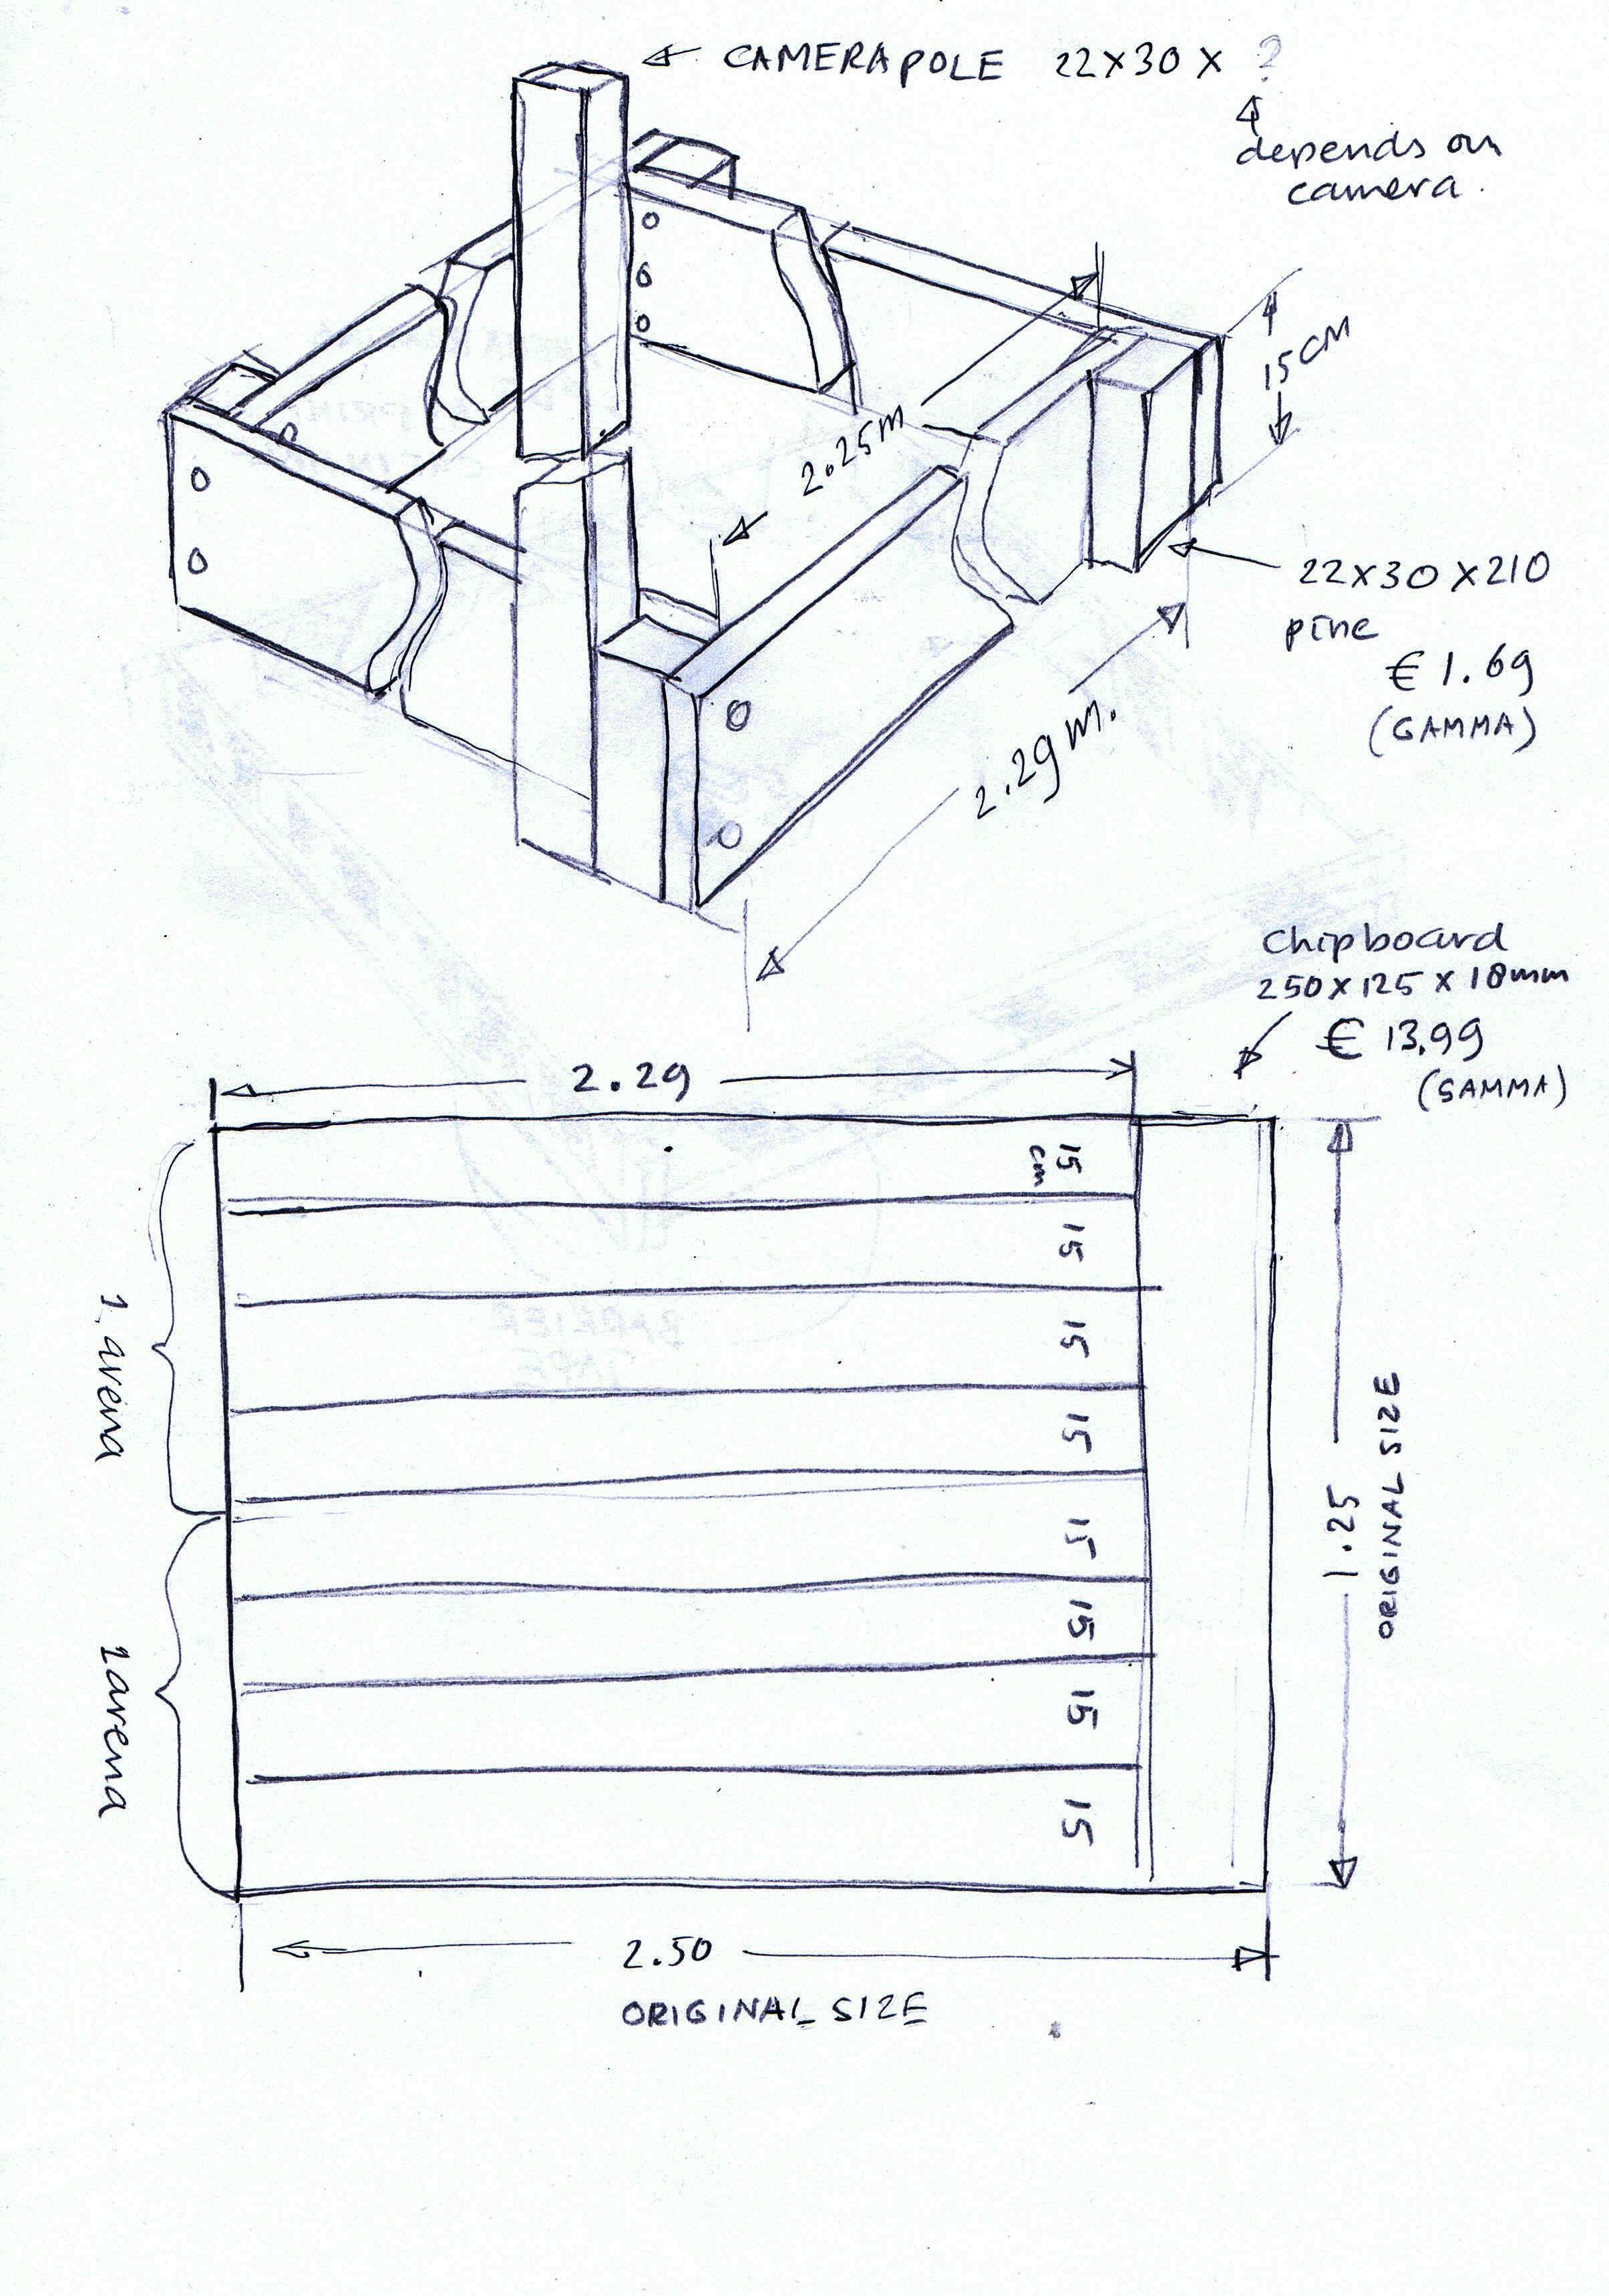 CAMERAPOLE 22X30 X ?
depends on
camera.
15CM
2.25m
22X30X210
pine
€ 1.69
(GAMMA)
2.29m.
Chipboard
250X125 X 18mm
€ 13.99
(GAMMA)
2.29
15
cm
15
15
15
15
15
15
15
1 arena
1 arena
1.25
ORIGINAL SIZE
2.50
ORIGINAL SIZE
BARRIER
TAPE